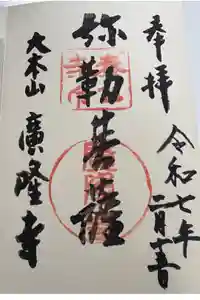 奉拝
令和七年
二月十五日
弥勒菩薩
大本山 廣隆寺